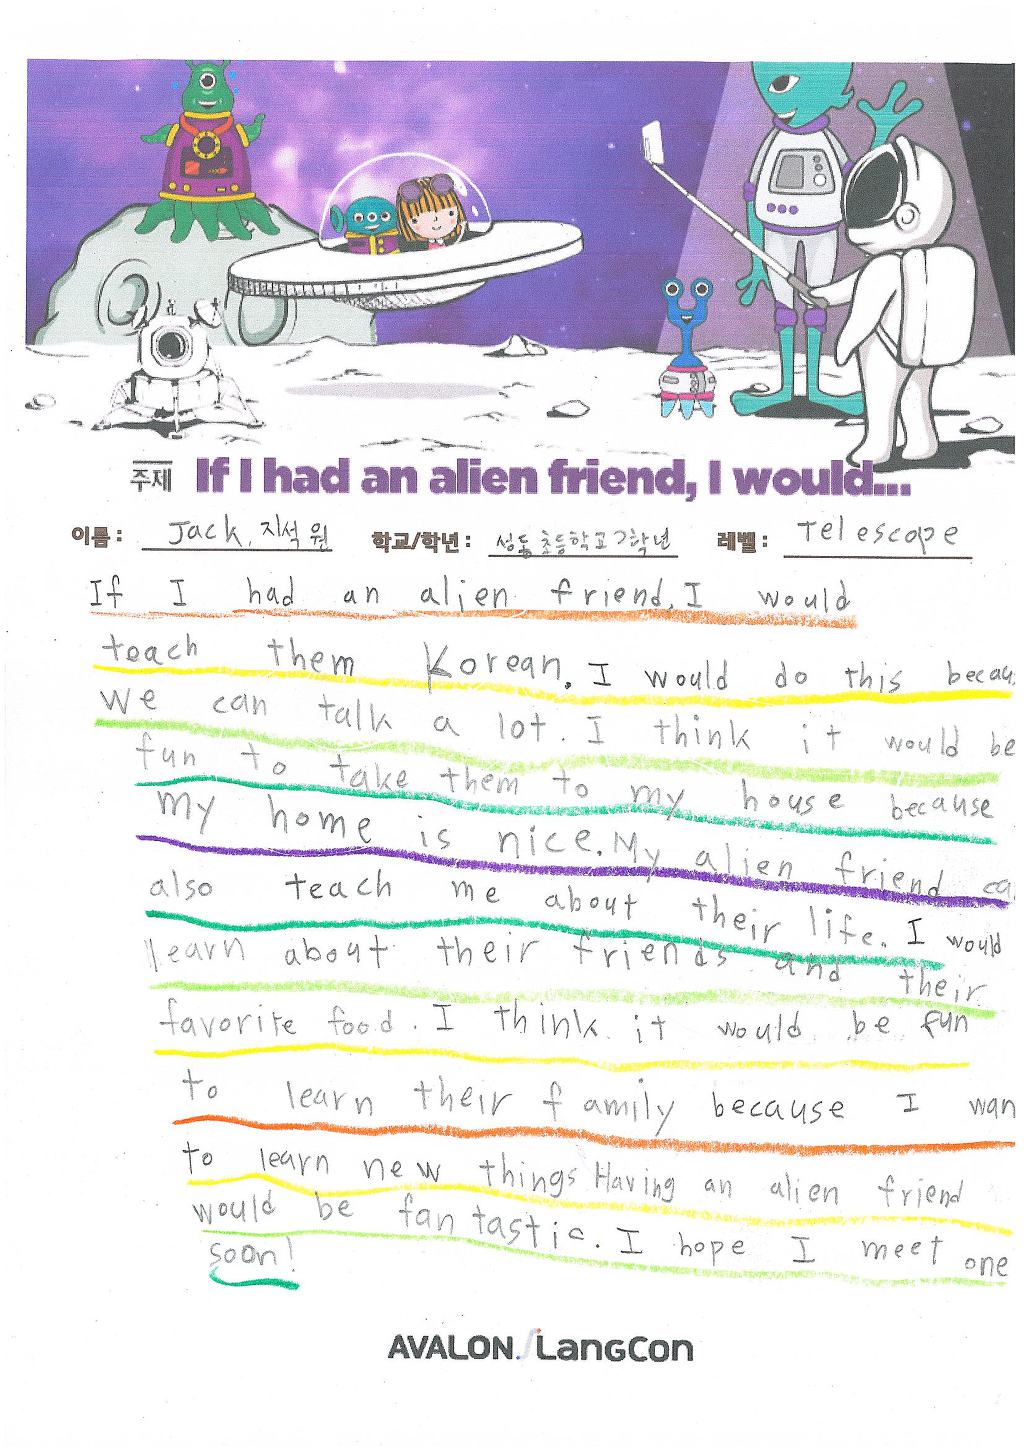 주제 If I had an alien friend, I would...
이름 : Jack, 지석원 학교/학년 : 성동초등학교 2학년 레벨 : Telescope
If I had an alien friend, I would
teach them Korean. I would do this becau
we can talk a lot. I think it would be
fun to take them to my house because
my home is nice. My alien friend ca
also teach me about their life. I would
learn about their friends and their
favorite food. I think it would be fun
to learn their family because I wan
to learn new things Having an alien friend
would be fantastic. I hope I meet one
soon!
AVALON LangCon